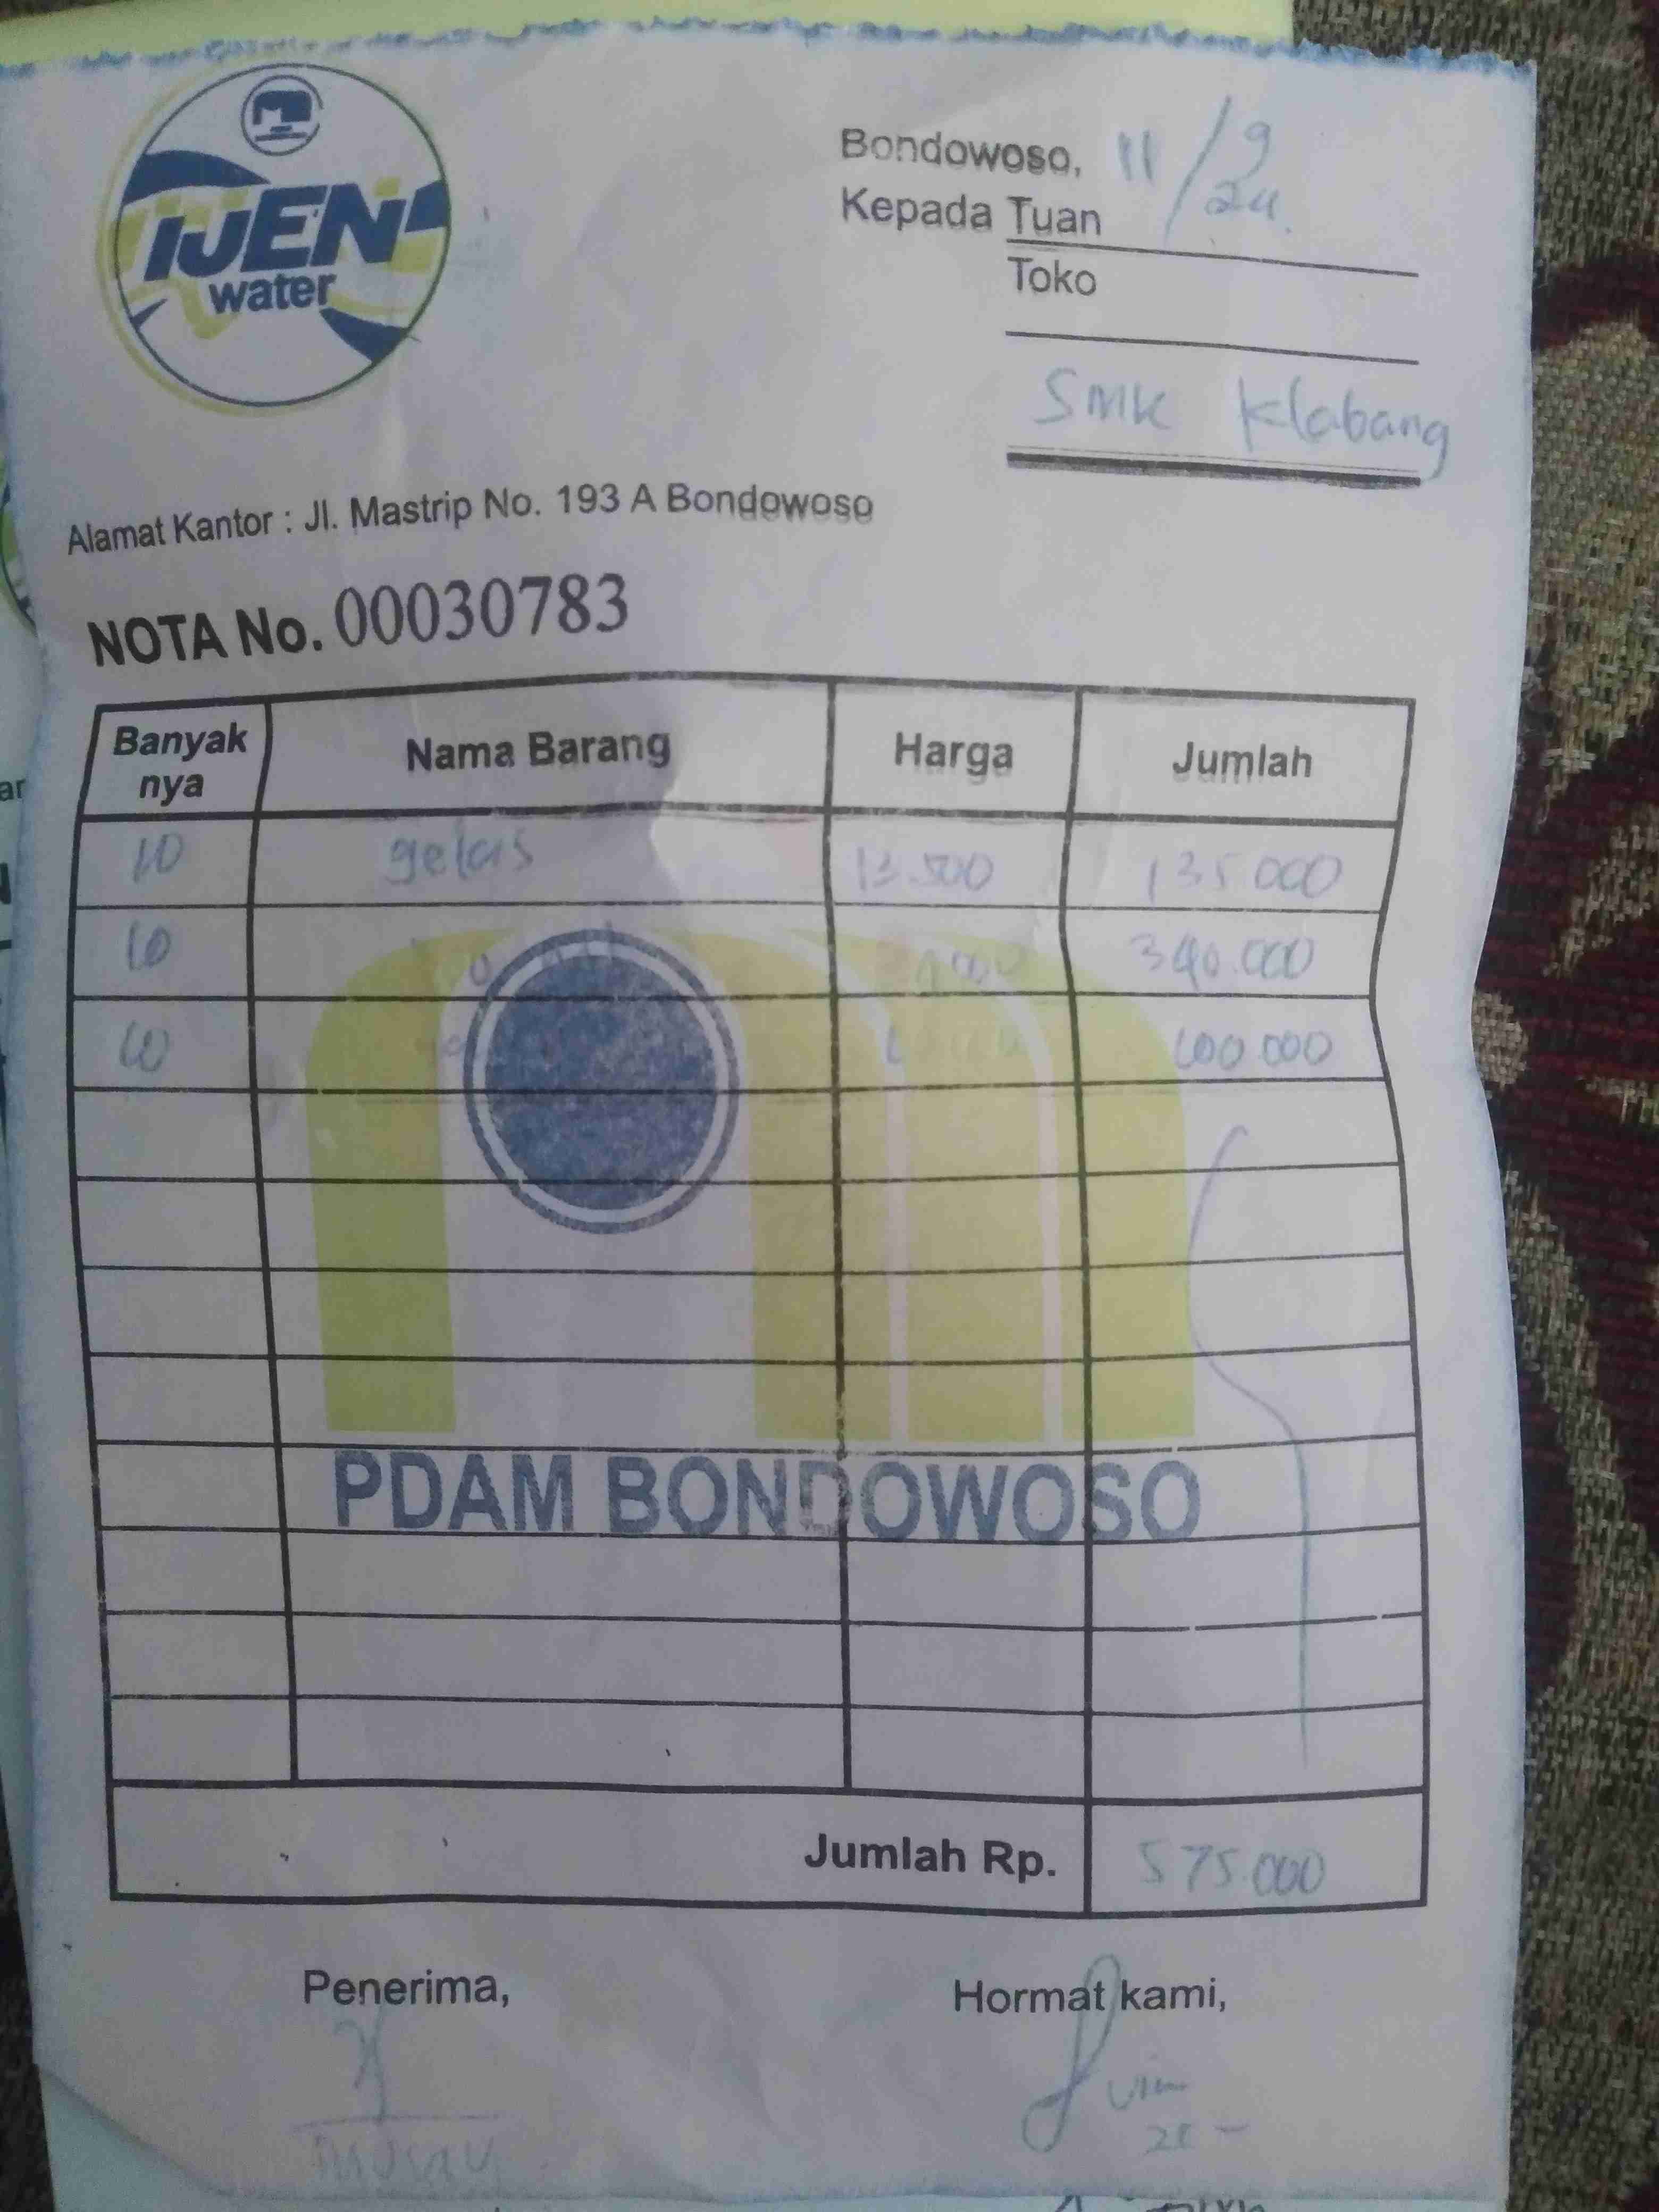 IJEN
water
Bondowoso, 11/9
24
Kepada Tuan
Toko
SMK Klabang
Alamat Kantor : Jl. Mastrip No. 193 A Bondowoso
NOTA No. 00030783
Banyak nya Nama Barang Harga Jumlah
10 gelas 13.500 135.000
10 340.000
10 100.000
PDAM BONDOWOSO
Jumlah Rp. 575.000
Penerima, Hormat kami,